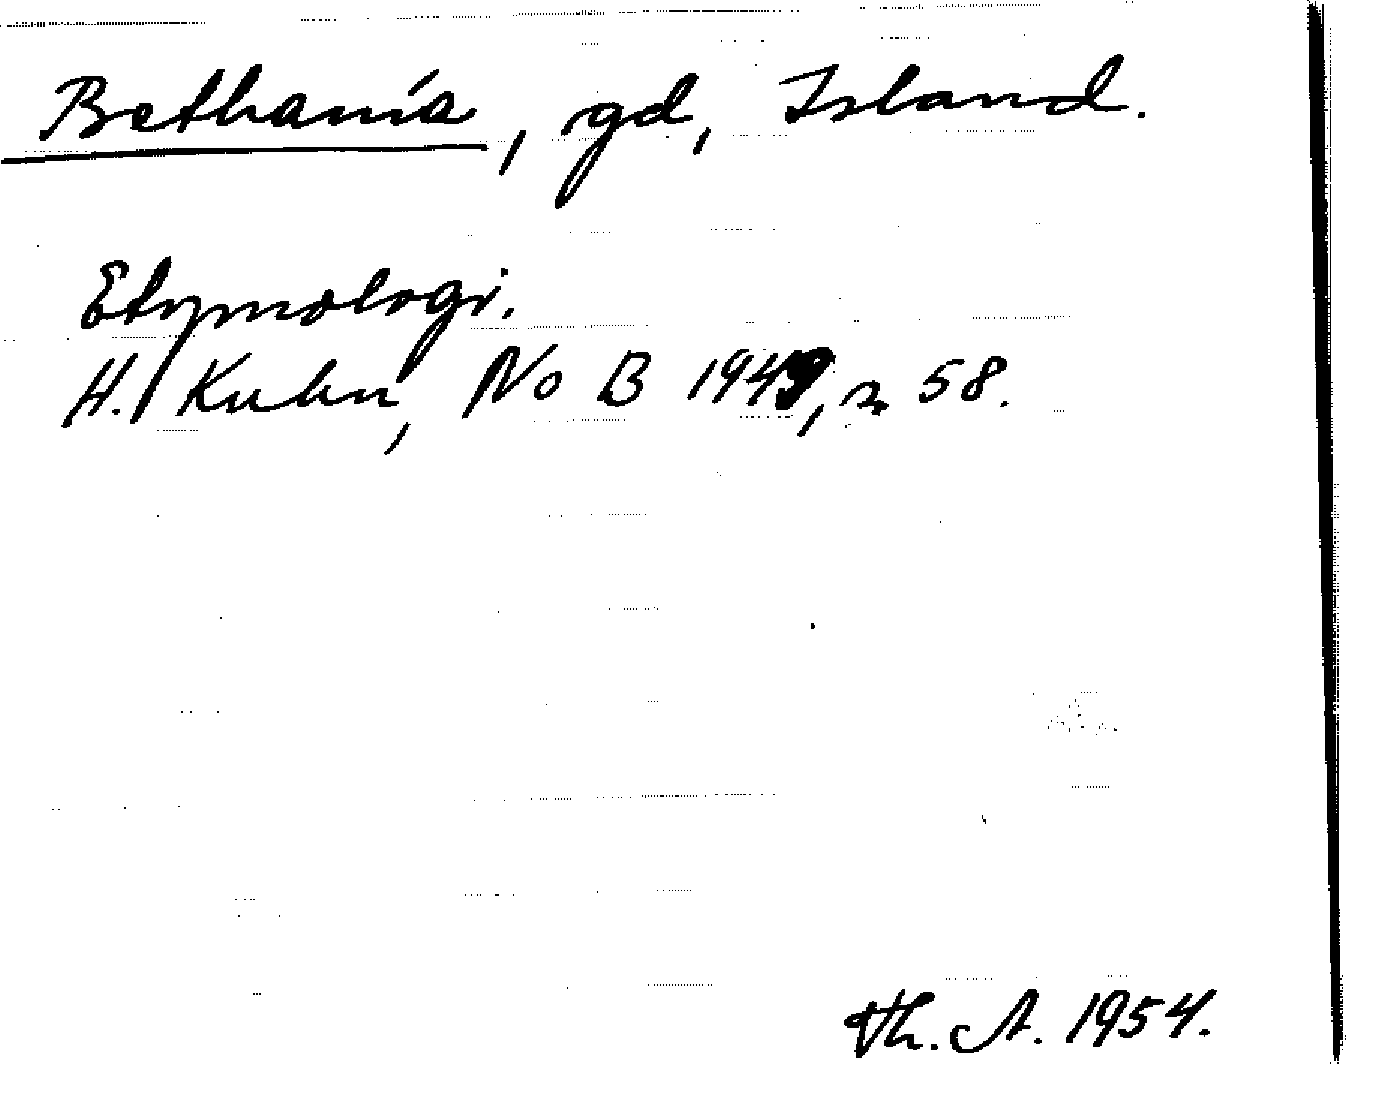 Bethanía, gd, Island.
Etymologi.
H. Kuhn, No B 1949, s. 58.
Th. A. 1954.